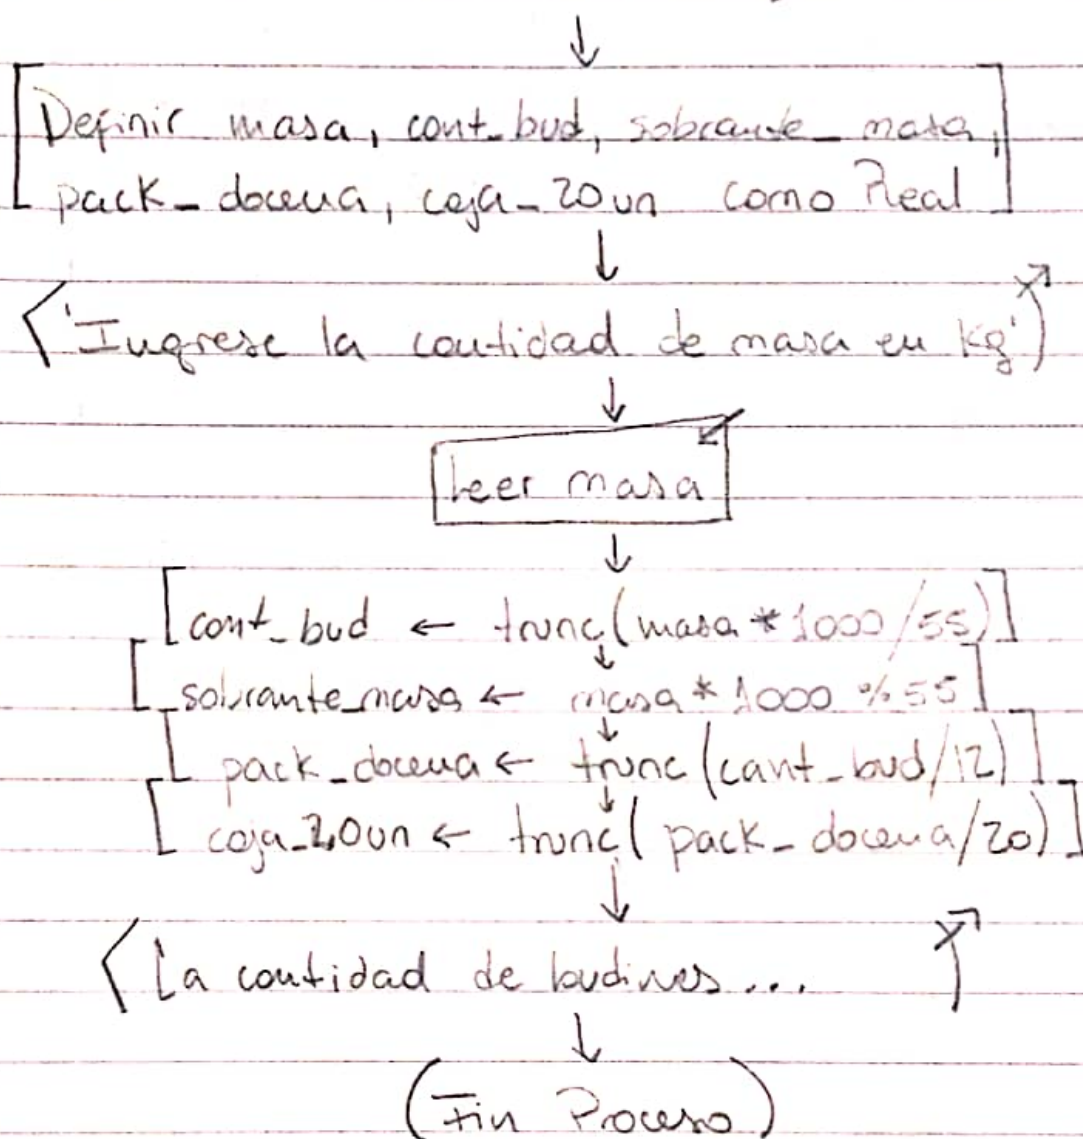 Definir masa, cant_bud, sobrante_masa,
pack_docena, caja_20un como Real
'Ingrese la cantidad de masa en Kg'
Leer masa
cant_bud ← trunc(masa * 1000/55)
sobrante_masa ← masa * 1000 % 55
pack_docena ← trunc(cant_bud/12)
caja_20un ← trunc(pack_docena/20)
'La cantidad de budines...
Fin Proceso